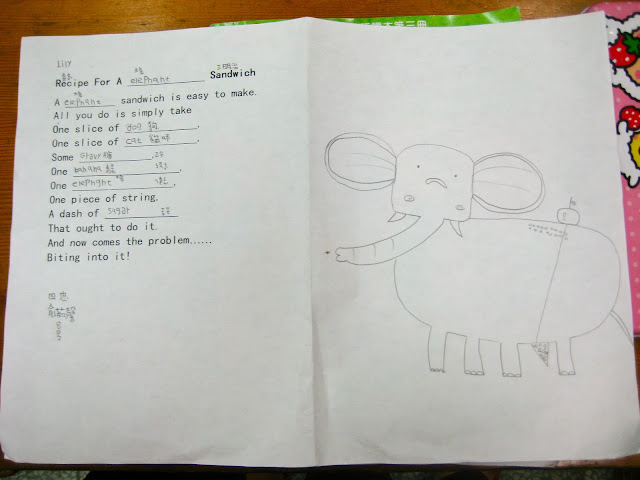 Lily
Recipe For A elephant Sandwich
A elephant sandwich is easy to make.
All you do is simply take
One slice of dog 狗.
One slice of cat 貓咪.
Some gravy
One banana
One elephant
One piece of string.
A dash of sugar
That ought to do it.
And now comes the problem......
Biting into it!
四忠
8号